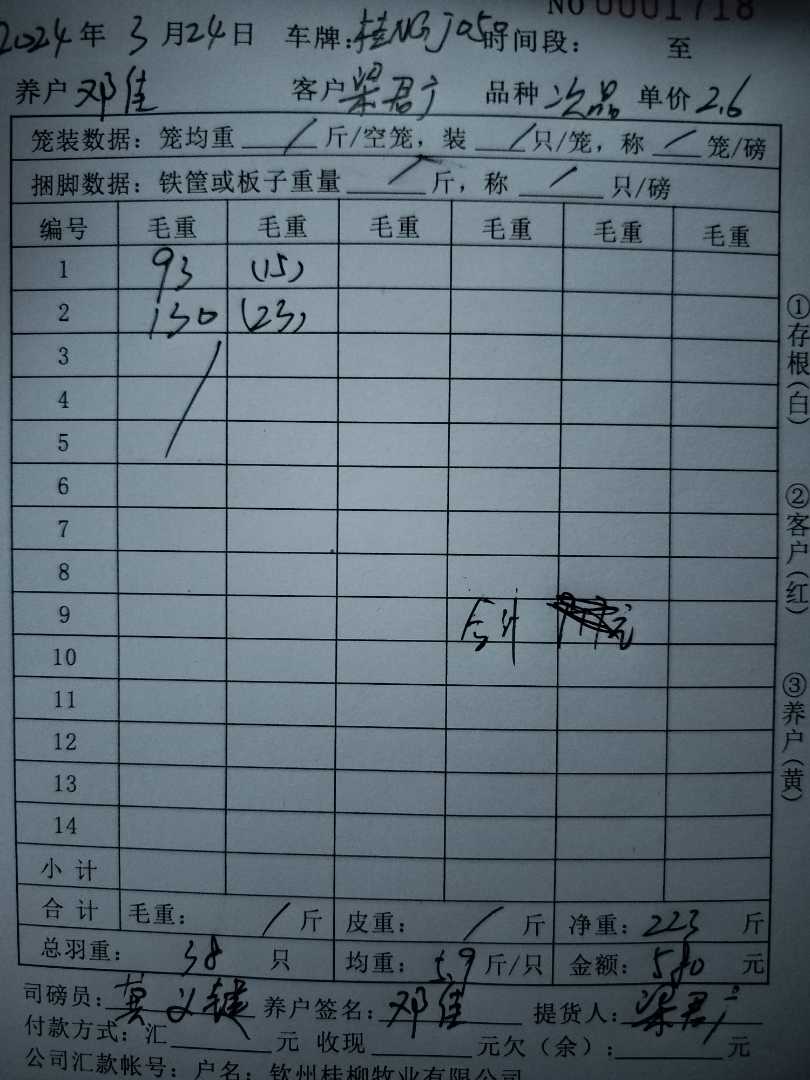 NO 0001718
2024年 3 月24日 车牌:桂NGJ050 时间段: 至
养户 邓佳 客户 梁君广 品种 次品 单价 2.6
笼装数据: 笼均重 / 斤/空笼, 装 / 只/笼, 称 / 笼/磅
捆脚数据: 铁筐或板子重量 / 斤, 称 / 只/磅
编号 毛重 毛重 毛重 毛重 毛重 毛重
1 93 (15)
2 130 (23)
3
4
5
6
7
8
9 合计 元
10
11
12
13
14
小 计
合 计 毛重: / 斤 皮重: / 斤 净重: 223 斤
总羽重: 38 只 均重: 5.9 斤/只 金额: 580 元
司磅员: 养户签名: 邓佳 提货人: 梁君广
付款方式: 汇 元 收现 元欠(余): 元
公司汇款帐号: 户名: 钦州桂柳牧业有限公司
①存根(白) ②客户(红) ③养户(黄)